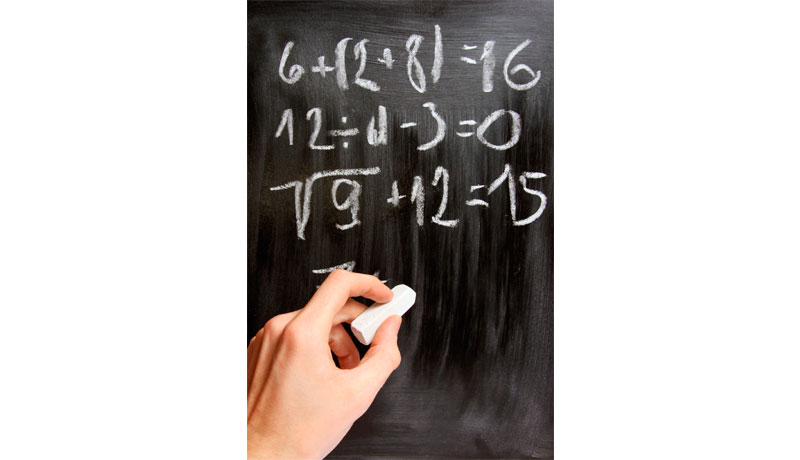 6+(2+8)=16
12÷4-3=0
√9+12=15
7